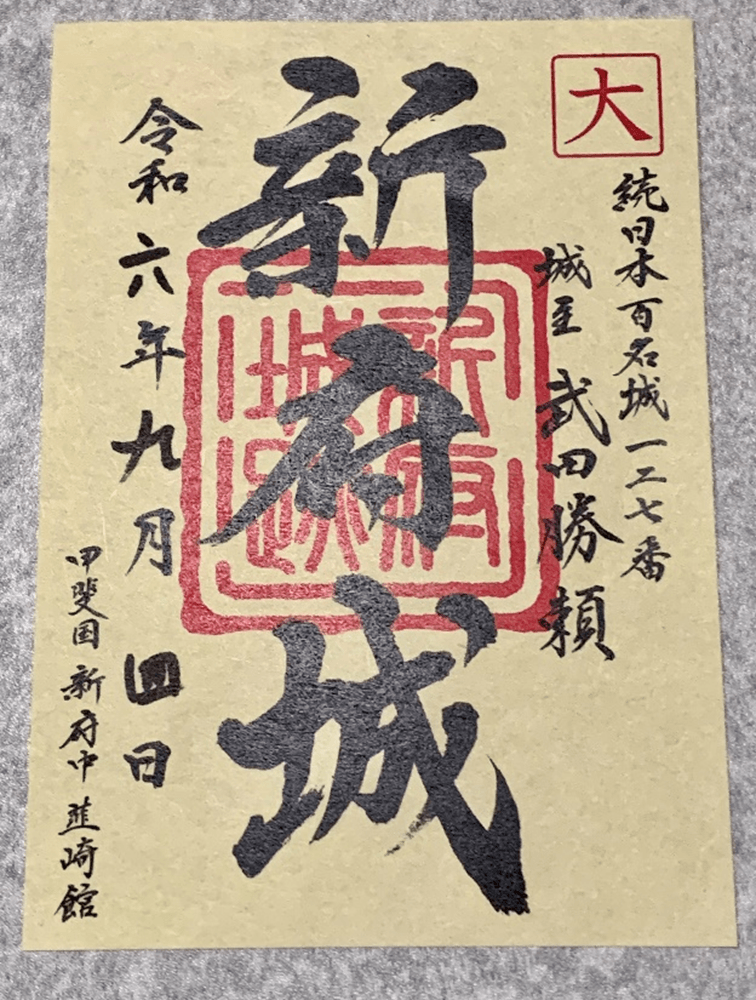 大
続日本百名城一二七番
城主 武田勝頼
新府城
新府
城跡
令和六年九月四日
甲斐国 新府中 韮崎館